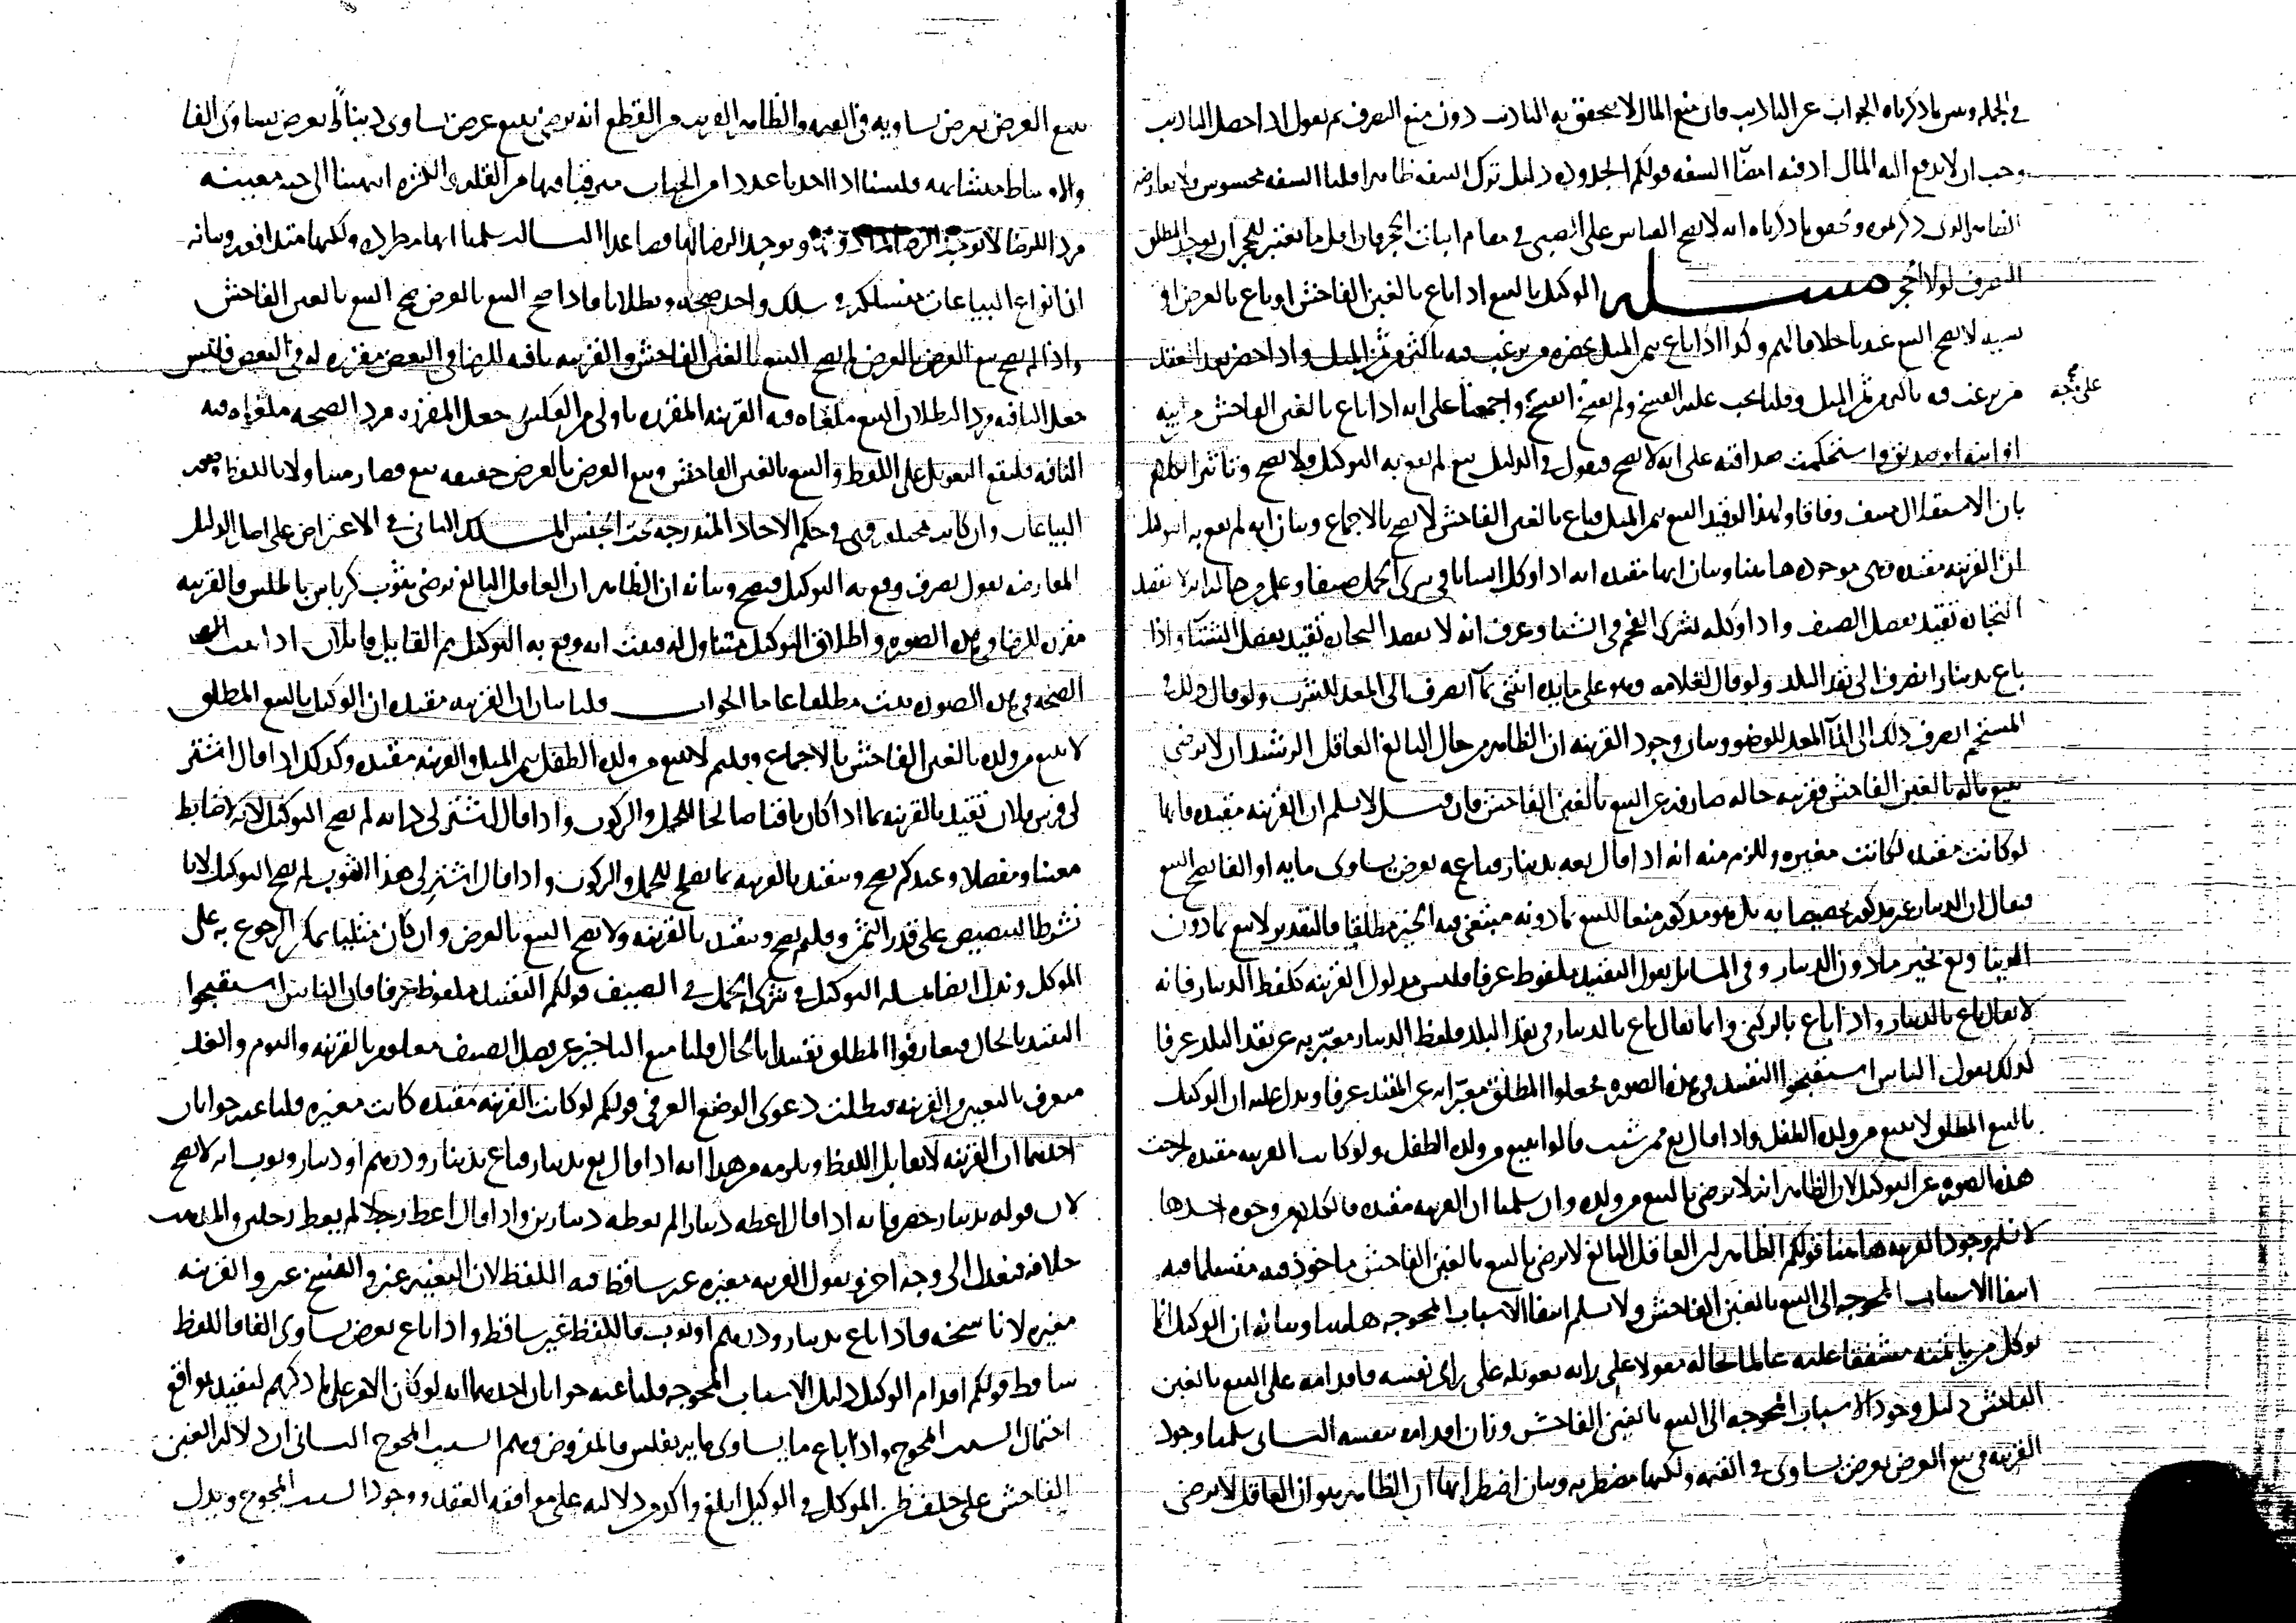 في الجملة وبين ما ذكرناه الجواب عن التاديب فان منع المال لا يتحقق به التاديب دون منع التصرف ثم نقول اذا حصل التاديب
وجب ان لا يدفع اليه المال اذ فيه ايضا السفه قولكم الحدود دليل ترك السفه ظاهرا قلنا السفه محسوس فلا يعارضه
الظاهر الذي ذكرتموه وتحقق ما ذكرناه انه لا يصح القياس على الصبي في مقام اثبات الحجر فان اقل ما يعتبر للحجر ان يوجد المطلق
التصرف لولا الحجر مسئله الوكيل بالبيع اذا باع بالغبن الفاحش او باع بالعرض او
نسيه لا يصح البيع عندنا خلافا لهم وكذا اذا باع بثمر المثل بحضرة من يرغب فيه باكثر من ثمن المثل واذا حضر بعد العقد
من يرغب فيه باكثر من ثمن المثل وقلنا يجب عليه الفسخ ولم يفسخ انفسخ واجمعنا على انه اذا باع بالغبن الفاحش من ابيه
على وجه
او ابنه او صديق واستحكمت صداقته على انه لا يصح فنقول في الدليل بيع لم يقع به التوكيل فلا يصح
بان الاستقلال وفاقا ولهذا لو قيد البيع بثمن المثل فباع بالغبن الفاحش لا يصح بالاجماع وبيان انه لم يقع به التوكيل
ان القرينة مقيدة وهي موجودة هاهنا وبيان انها مقيدة انه اذا وكل انسانا في شرى الجمد صيفا وعلم من حاله انه لا يقصد
التجارة تقيد بفصل الصيف واذا وكله بشرى الفحم في الشتا وعرف انه لا يقصد التجارة تقيد بفصل الشتا واذا
باع بدينار انصرف الى نقد البلد ولو قال لغلامه وهو على مايدة ائتني بمآ انصرف الى المعد للشرب ولو قال ذلك في
المستحم انصرف ذلك الى المآ المعد للوضو وبيان وجود القرينه ان الظاهر من حال البالغ العاقل الرشيد ان لا يرضى
ببيع ماله بالغبن الفاحش فقرينه حاله صارفة عن البيع بالغبن الفاحش فان قيل لا نسلم ان القرينه مقيده فانها
لو كانت مقيده لكانت مغيره وللزم منه انه اذا قال بعه بدينار فباعه بعرض يساوي مايه او الفا يصح البيع
فيقال ان الدينار غير مذكور تخصيصا به بل هو مذكور منعا للبيع بما دونه فينتفي فيه الحجر مطلقا فالتقدير لا تبع بما دون
الدينار وبع بخير ما دون الدينار وفي المسايل نقول التقييد ملفوظ عرفا فليس مدلول القرينه كلفظ الدينار فانه
لا يقال باع بالدينار واذا باع بالركني وانما يقال باع بالدينار في نقد البلد فلفظ الدينار معبر به عن نقد البلد عرفا
كذلك نقول الناس استقبحوا التقييد في هذه الصوره فجعلوا المطلق معبرا به عن المقيد عرفا ويدل عليه ان الوكيل
بالبيع المطلق لا يبيع من ولده الطفل واذا قال بع ممن شيت قالوا يبيع من ولده الطفل ولو كانت القرينه مقيده لخرجت
هذه الصوره عن التوكيل لان الظاهر انه لا يرضى بالبيع من ولده وان سلمنا ان القرينه مقيده فالكلام من وجوه احدها
لا نسلم وجود القرينه هاهنا قولكم الظاهر ان العاقل البالغ لا يرضى بالبيع بالغبن الفاحش ماخوذ فيه مقيسا فيه
انتفا الاسباب المحوجه الى البيع بالغبن الفاحش ولا نسلم انتفا الاسباب المحوجه هاهنا وبيانه ان الوكيل انما
يوكل من يامنه مشفقا عليه عالما بحاله معولا على رايه تعويله على راي نفسه فاقدامه على البيع بالغبن
الفاحش دليل وجود الاسباب المحوجه الى البيع بالغبن الفاحش وزان اقدامه بنفسه الثاني سلمنا وجود
القرينه في بيع العرض بعرض يساوي في القيمه ولكنها مضطربه وبيان اضطرابها ان الظاهر هو ان العاقل لا يرضى
ببيع العرض بعرض يساويه في القيمه والظاهر القريب من القطع انه يرضى ببيع عرض يساوي دينارا بعرض يساوي الفا
والاوساط متشابهه فلسنا اذا اخذنا عددا من الجهات مترقيا فيها من القله الى الكثره انتهينا الى حد معينه
فرد اللرضا لا يوجد الرضا بما دونه ويوجد الرضا بها فصاعدا الثالث سلمنا انها مطرده ولكنها متدافعه وبيانه
ان انواع البياعات منسلكه في سلك واحد صحة وبطلانا فاذا صح البيع بالعرض صح البيع بالغبن الفاحش
واذا لم يصح بيع العرض بالعرض لم يصح البيع بالغبن الفاحش والقرينه نافيه للرضا في البعض مقرره له في البعض فليس
جعل النافيه مرد البطلان البيع ملغاه فيه القرينه المقرره باولى من العكس جعل المقرره مرد الصحه ملغاه فيه
النافيه فليقع التعويل على اللفظ والبيع بالغبن الفاحش وبيع العرض بالعرض حقيقه بيع فصار متناولا باللفظ
البياعات وان كانت مختلفه فهي في حكم الاحاد المندرجه تحت الجنس المسلك الثاني في الاعتراض على اصل الدليل
المعارضه نقول تصرف وقع به التوكيل فيصح وبيانه ان الظاهر ان العاقل البالغ يرضى بثوب كرباس باطلس فالقرينه
مقرره للرضا في هذه الصوره واطلاق التوكيل متناول له فيثبت انه وقع به التوكيل ثم القايل قايلان اذا ثبتت
الصحه في هذه الصوره ثبتت مطلقا عاما الجواب قلنا بيان ان القرينه مقيده ان الوكيل بالبيع المطلق
لا يبيع من ولده بالغبن الفاحش بالاجماع وقلتم لا يبيع من ولده الطفل بثمن المثل والقرينه مقيده وكذلك اذا قال اشتر
لي فرس فلان تقيد بالقرينه بما اذا كان باقيا صالحا للحمل والركوب واذا قال اشتر لي دابه لم يصح التوكيل لانه لا ضابط
معينا ومفصلا وعندكم يصح ويتقيد بالقرينه بما يصلح للحمل والركوب واذا قال اشتر لي هذا الثوب لم يصح التوكيل لانا
نشرط التنصيص على قدر الثمن وقلتم يصح ويتقيد بالقرينه ولا يصح البيع بالعرض وان كان مثليا يمكن الرجوع به على
الموكل ويدل ايضا مسله التوكيل في شرى الجمد في الصيف قولكم التقييد ملفوظ عرفا فان الناس استقبحوا
التقييد بالحال فتعارفوا المطلق تقييدا بالحال قلنا منع التاخير عن فصل الصيف معلوم بالقرينه واليوم والغد
متعرف بالتعيين والقرينه فبطلت دعوى الوضع العرفي قولكم لو كانت القرينه مقيده كانت مغيره قلنا عنه جوابان
احدهما ان القرينه لا تقابل اللفظ ويلزمه من هذا انه اذا قال بع بدينار فباع بدينار ودرهم او دينار وثوب انه لا يصح
لان قوله بدينار حصر فانه اذا قال اعطه دينارا لم يعطه دينارين واذا قال اعط رجلا لم يعط رجلين والمذهب
خلافه فنعدل الى وجه اخر ونقول القرينه مغيره غير ساقط فيه اللفظ لان التغيير غير والفسخ غير والقرينه
مغيره لا ناسخه فاذا باع بدينار ودرهم او ثوب فاللفظ غير ساقط واذا باع بعرض يساوي الفا فاللفظ
ساقط قولكم اقدام الوكيل دليل الاسباب المحوجه قلنا عنه جوابان احدهما انه لو كان الامر على ما ذكرتم لتقيد بمواقع
احتمال السبب المحوج واذا باع ما يساوي مايه بفلس فالمفروض وهم السبب المحوج الثاني ان دلالة الغبن
الفاحش على خلف ظن الموكل في الوكيل ابلغ واكد من دلالته على موافقه العقد ووجود السبب المحوج ويدل